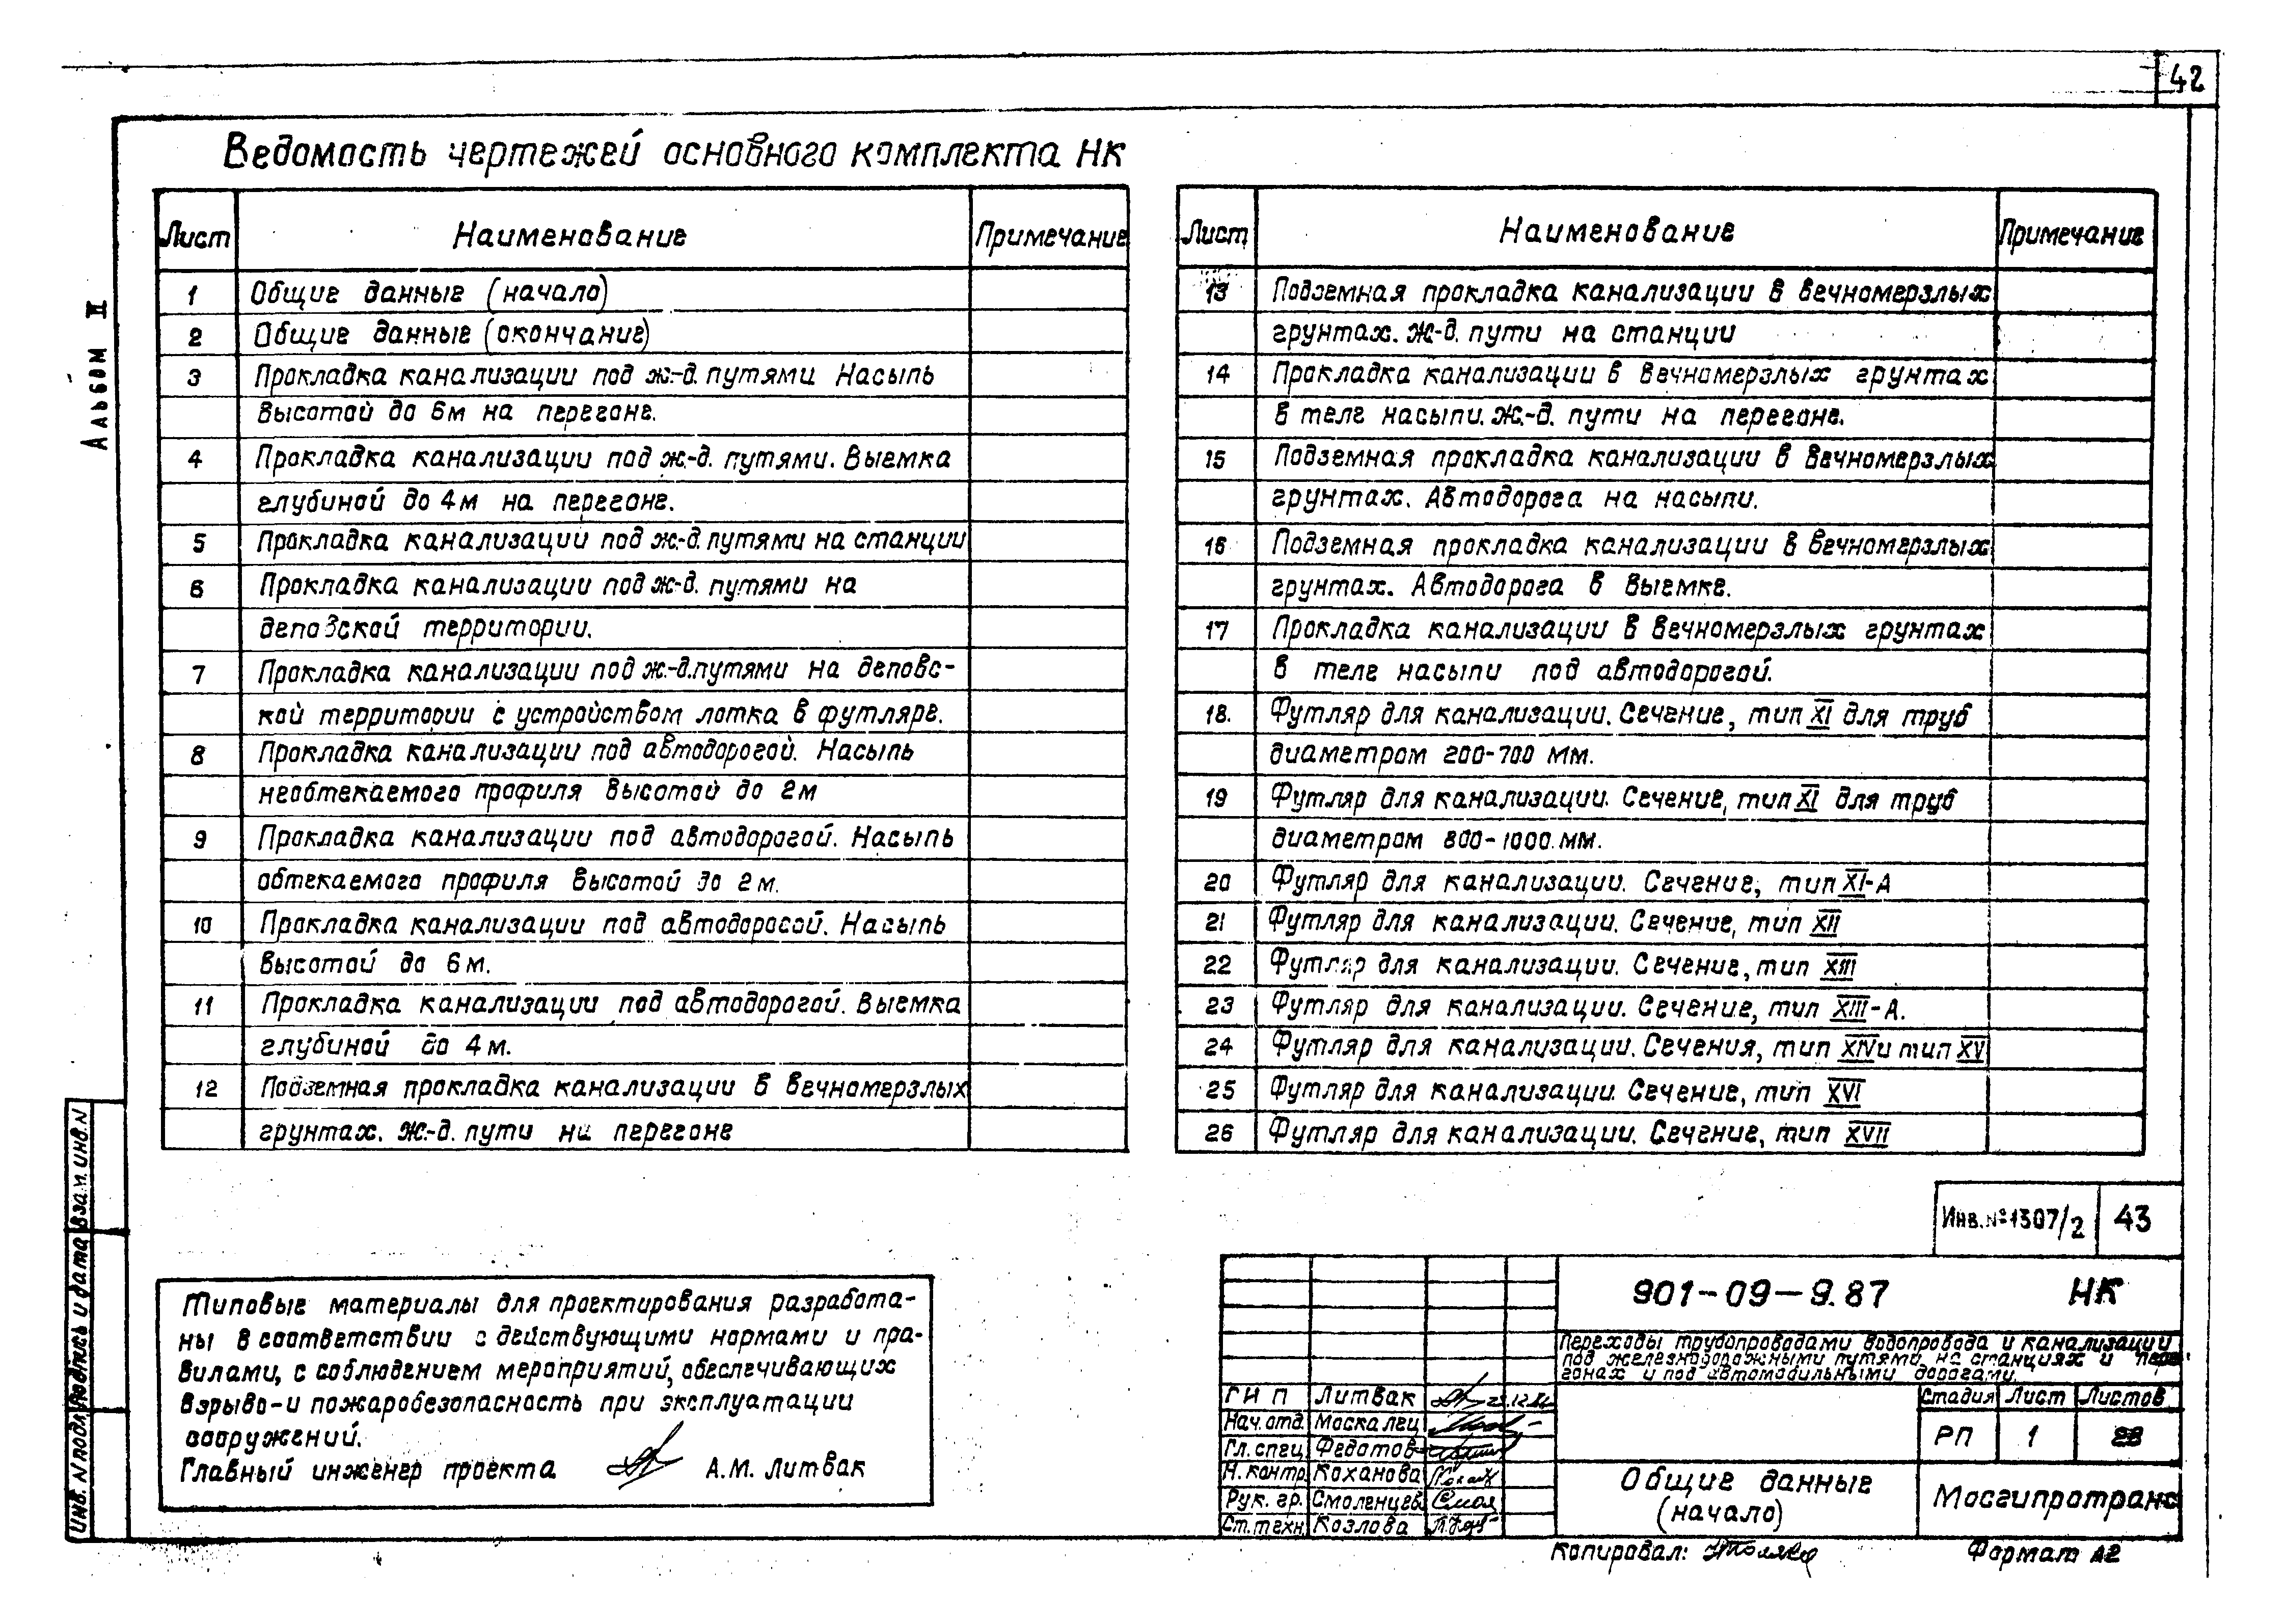 42
Альбом II
Ведомость чертежей основного комплекта НК
Лист Наименование Примечание
1 Общие данные (начало)
2 Общие данные (окончание)
3 Прокладка канализации под ж.-д. путями Насыпь
высотой до 6м на перегоне.
4 Прокладка канализации под ж.-д. путями. Выемка
глубиной до 4м на перегоне.
5 Прокладка канализации под ж.-д. путями на станции
6 Прокладка канализации под ж.-д. путями на
деповской территории.
7 Прокладка канализации под ж.-д. путями на деповс-
кой территории с устройством лотка в футляре.
8 Прокладка канализации под автодорогой. Насыпь
необтекаемого профиля высотой до 2м
9 Прокладка канализации под автодорогой. Насыпь
обтекаемого профиля высотой до 2м.
10 Прокладка канализации под автодорогой. Насыпь
высотой до 6м.
11 Прокладка канализации под автодорогой. Выемка
глубиной до 4м.
12 Подземная прокладка канализации в вечномерзлых
грунтах. Ж.-д. пути на перегоне
Лист Наименование Примечание
13 Подземная прокладка канализации в вечномерзлых
грунтах. Ж.-д. пути на станции
14 Прокладка канализации в вечномерзлых грунтах
в теле насыпи. Ж.-д. пути на перегоне.
15 Подземная прокладка канализации в вечномерзлых
грунтах. Автодорога на насыпи.
16 Подземная прокладка канализации в вечномерзлых
грунтах. Автодорога в выемке.
17 Прокладка канализации в вечномерзлых грунтах
в теле насыпи под автодорогой.
18. Футляр для канализации. Сечение, тип XI для труб
диаметром 200-700 мм.
19 Футляр для канализации. Сечение, тип XI для труб
диаметром 800-1000.мм.
20 Футляр для канализации. Сечение, тип XI-А
21 Футляр для канализации. Сечение, тип XII
22 Футляр для канализации. Сечение, тип XIII
23 Футляр для канализации. Сечение, тип XIII-А.
24 Футляр для канализации. Сечения, тип XIV и тип XV
25 Футляр для канализации. Сечение, тип XVI
26 Футляр для канализации. Сечение, тип XVII
Типовые материалы для проектирования разработа-
ны в соответствии с действующими нормами и пра-
вилами, с соблюдением мероприятий, обеспечивающих
взрыво- и пожаробезопасность при эксплуатации
сооружений.
Главный инженер проекта А.М. Литвак
Инв. № 1307/2 43
901-09-9.87 НК
Переходы трубопроводами водопровода и канализации
под железнодорожными путями на станциях и пере-
гонах и под автомобильными дорогами.
ГИП Литвак
Нач. отд. Москалец
Гл. спец. Федотов
Н. контр. Коханова
Рук. гр. Смоленцев
Ст. техн. Козлова
Стадия Лист Листов
РП 1 28
Общие данные
(начало)
Мосгипротранс
Копировал:
Формат А2
Инв. N подл. Подпись и дата Взам. инв. N